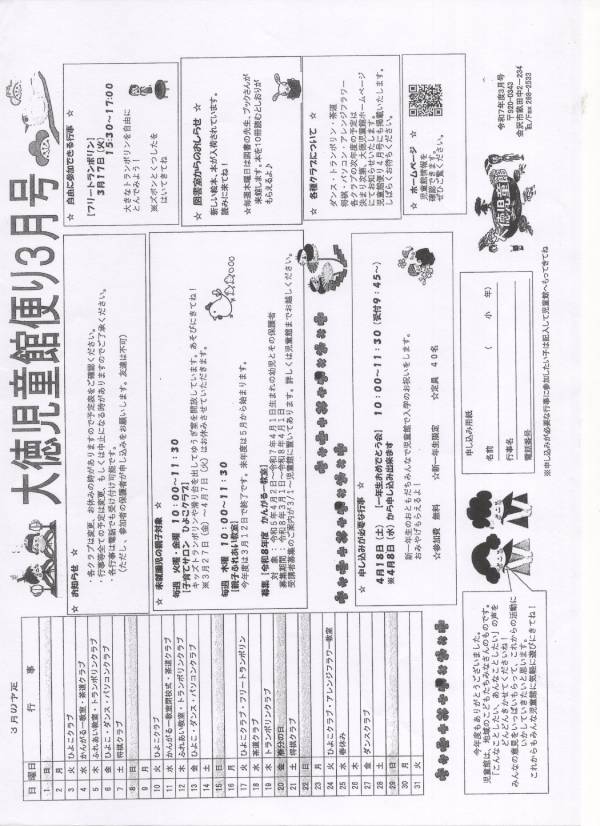 大徳児童館便り3月号
☆ お知らせ ☆
・各クラブは変更、お休みの時がありますので予定表をご確認ください。
・行事等全て予定は変更、もしくは中止になる時がありますのでご了承ください。
・各行事は電話でも受け付け可能です。
（ただし、、参加者の保護者が申し込みをお願いします。友達は不可）
☆ 自由に参加できる行事 ☆
【フリートランポリン】
3月17日（火）
15:30～17:00
大きなトランポリンを自由に
とんでみよう！
※ズボンとくつしたを
はいてきてね
☆ 未就園児の親子対象 ☆
毎週 火曜・金曜 10:00～11:30
【子育てサロン ぷらんクラブ】
キッズトランポリンや滑り台を出してゆうぎ室を開放しています。あそびにきてね！
※3月27日（金）～4月7日（火）はお休みさせていただきます。
毎週 木曜 10:00～11:30
【親子ふれあい教室】
今年度は3月12日で終了です。来年度は5月から始まります。
募集【令和8年度 かんがるー教室】
対 象：令和5年4月2日～令和7年4月1日生まれの幼児とその保護者
募集期間：令和8年3月1日～令和8年4月1日
受講者募集のご案内が3/1～児童館に置いてあります。詳しくは児童館までお越しください。
☆ 図書室からのおしらせ ☆
新しい絵本、本が入荷されています。
読みに来てね！
★毎週木曜日は図書の先生、ブックさんが
来館します。本を10冊読むとしおりが
もらえるよ♪
☆ 各種クラブについて ☆
ダンス・トランポリン・茶道
将棋・パソコン・アレンジフラワー
各クラブの次年度の予定は
決まり次第、大徳児童館ホームページ
にてお知らせいたします。
児童館便り4月号にも掲載いたします。
しばらくお待ちください。
☆ 申し込みが必要な行事 ☆
4月18日（土） 【一年生おめでとう会】 10:00～11:30（受付9:45～）
※4月8日（水）から申し込み出来ます
新一年生のおともだちみんなで児童館で入学のお祝いをします。
おみやげもらえるよ！
☆参加費 無料 ☆新一年生限定 ☆定員 40名
☆ ホームページ ☆
児童館情報を
確認できます。
ぜひご覧ください。
申し込み用紙
名前 （ 小 年）
行事名
電話番号
※申し込みが必要な行事に参加したい子は記入して児童館へもってきてね
大徳児童館
令和7年度3月号
〒920-0343
金沢市畝田中2-234
℡/Fax 268-2533
3月の予定
日 曜日 行 事
1 日
2 月
3 火 ひよこクラブ
4 水 かんがるー教室・茶道クラブ
5 木 ふれあい教室・トランポリンクラブ
6 金 ひよこ・ダンス・パソコンクラブ
7 土 将棋クラブ
8 日
9 月
10 火 ひよこクラブ
11 水 かんがるー教室閉校式・茶道クラブ
12 木 ふれあい教室・トランポリンクラブ
13 金 ひよこ・ダンス・パソコンクラブ
14 土
15 日
16 月
17 火 ひよこクラブ・フリートランポリン
18 水 茶道クラブ
19 木 トランポリンクラブ
20 金 春分の日
21 土 将棋クラブ
22 日
23 月
24 火 ひよこクラブ・アレンジフラワー教室
25 水 春休み
26 木
27 金 ダンスクラブ
28 土
29 日
30 月
31 火
今年度もありがとうございました。
児童館は、地域のこどもたちみなさんのものです。
「こんなことしたい、あんなことしたい」の声を
どんどんきかせてくださいね！
みんなの意見をいっぱいもらって、これからの活動に
いかしていきたいと思います。
これからもみんな児童館に気軽に遊びにきてね！